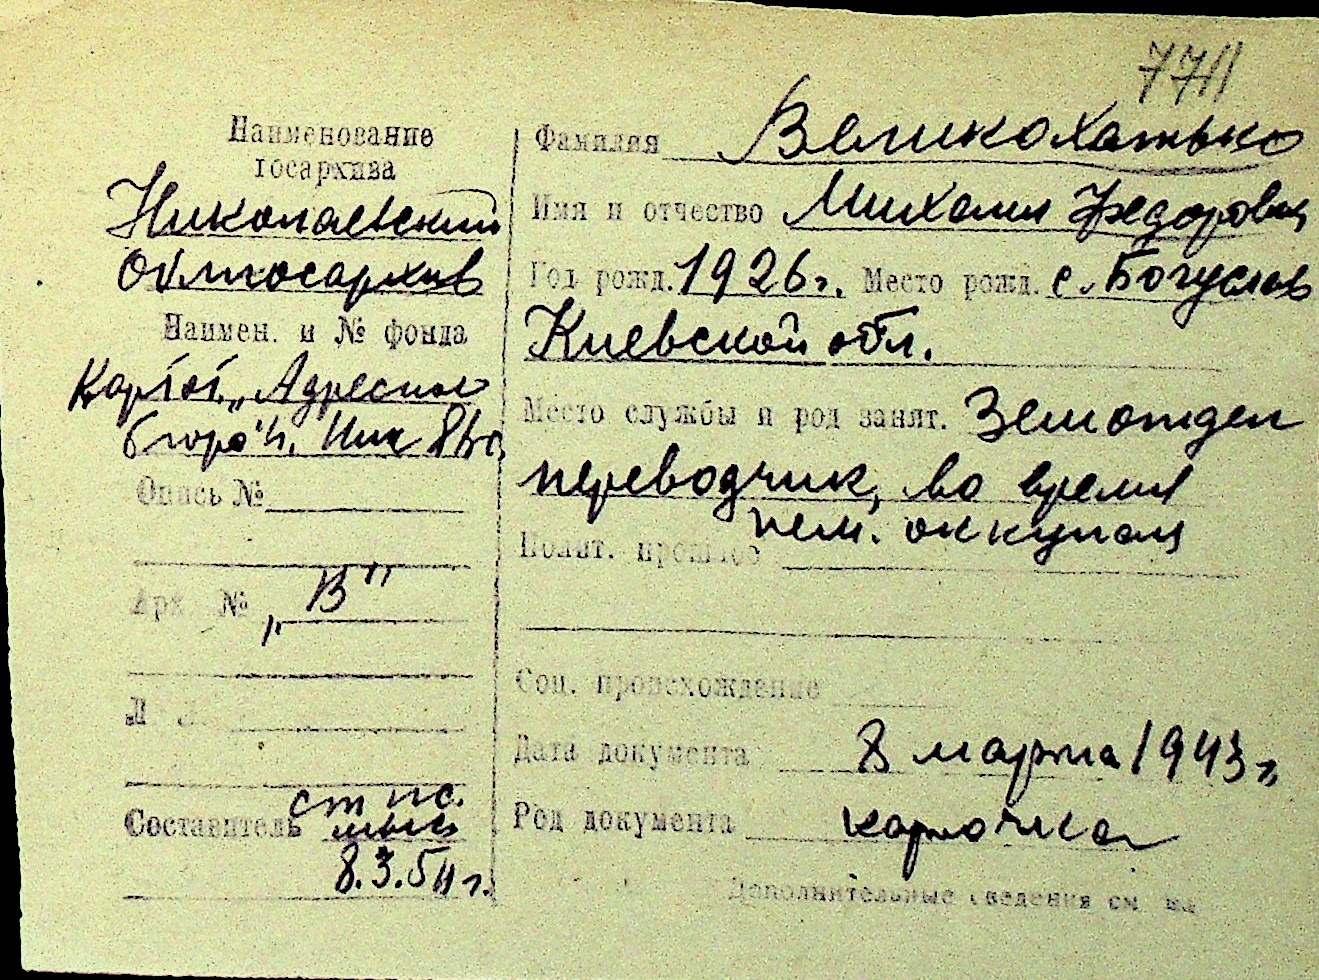 7711
Наименование
госархива
Николаевский
Облгосархив
Наимен. и № фонда
Картот. „Адресное
бюро" г.
Опись №
Арх №
„В"
Составитель ст пс.
8.3.5
Фамилия Великохатько
Имя и отчество Михаил Федорович
Год рожд. 1926 г. Место рожд. с. Богуслав
Киевской обл.
Место службы и род занят. Земотдел
переводчик, во время
нем. оккупац
Полит. прошлое
Соц. происхождение
Дата документа 8 марта 1943 г.
Род документа карточка
Дополнительные сведения см